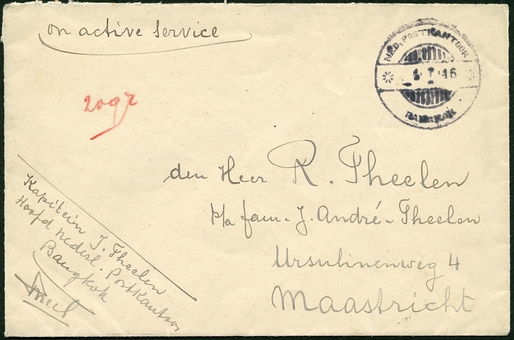 on active service
NED. POSTKANTOOR
4.7.46
BANGKOK
20gr
den Heer R. Theelen
p/a fam. J. André-Theelen
Ursulinenweg 4
Maastricht
Kapitein J. Theelen
Hoofd Nederl. Postkantoor
Bangkok